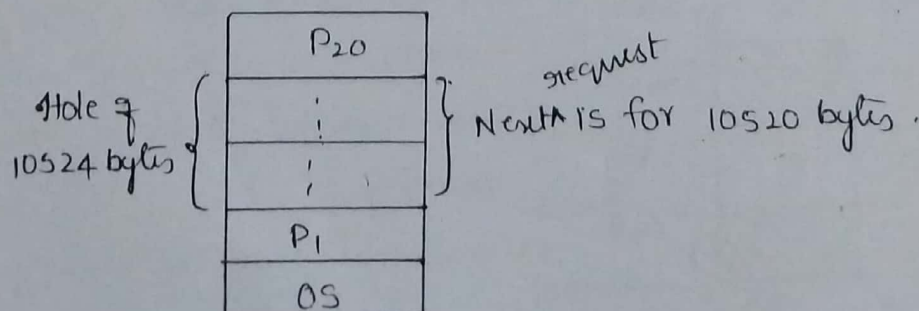 P20
Hole of
10524 bytes
request
Next^ is for 10520 bytes.
P1
OS